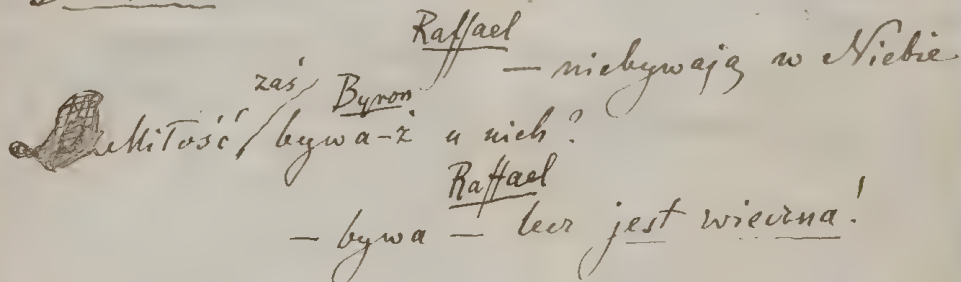 Raffael
— niebywają w Niebie
zaś
Byron
Miłość, bywa-ż u nich?
Raffael
— bywa — lecz jest wieczna!